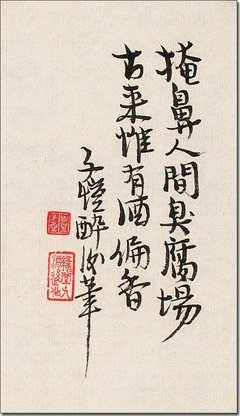 掩鼻人間臭腐場
古来惟有酒偏香
子愷醉後筆